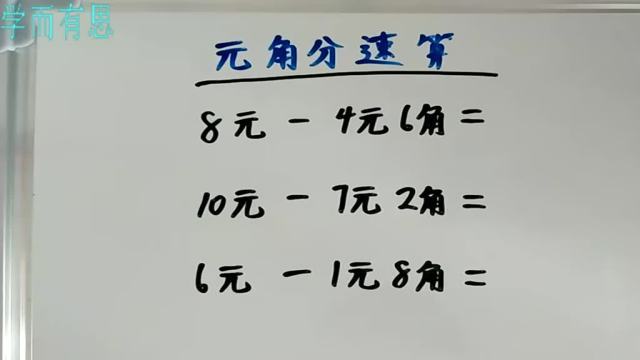 学而有思
元角分速算
8元 - 4元6角 =
10元 - 7元2角 =
6元 - 1元8角 =